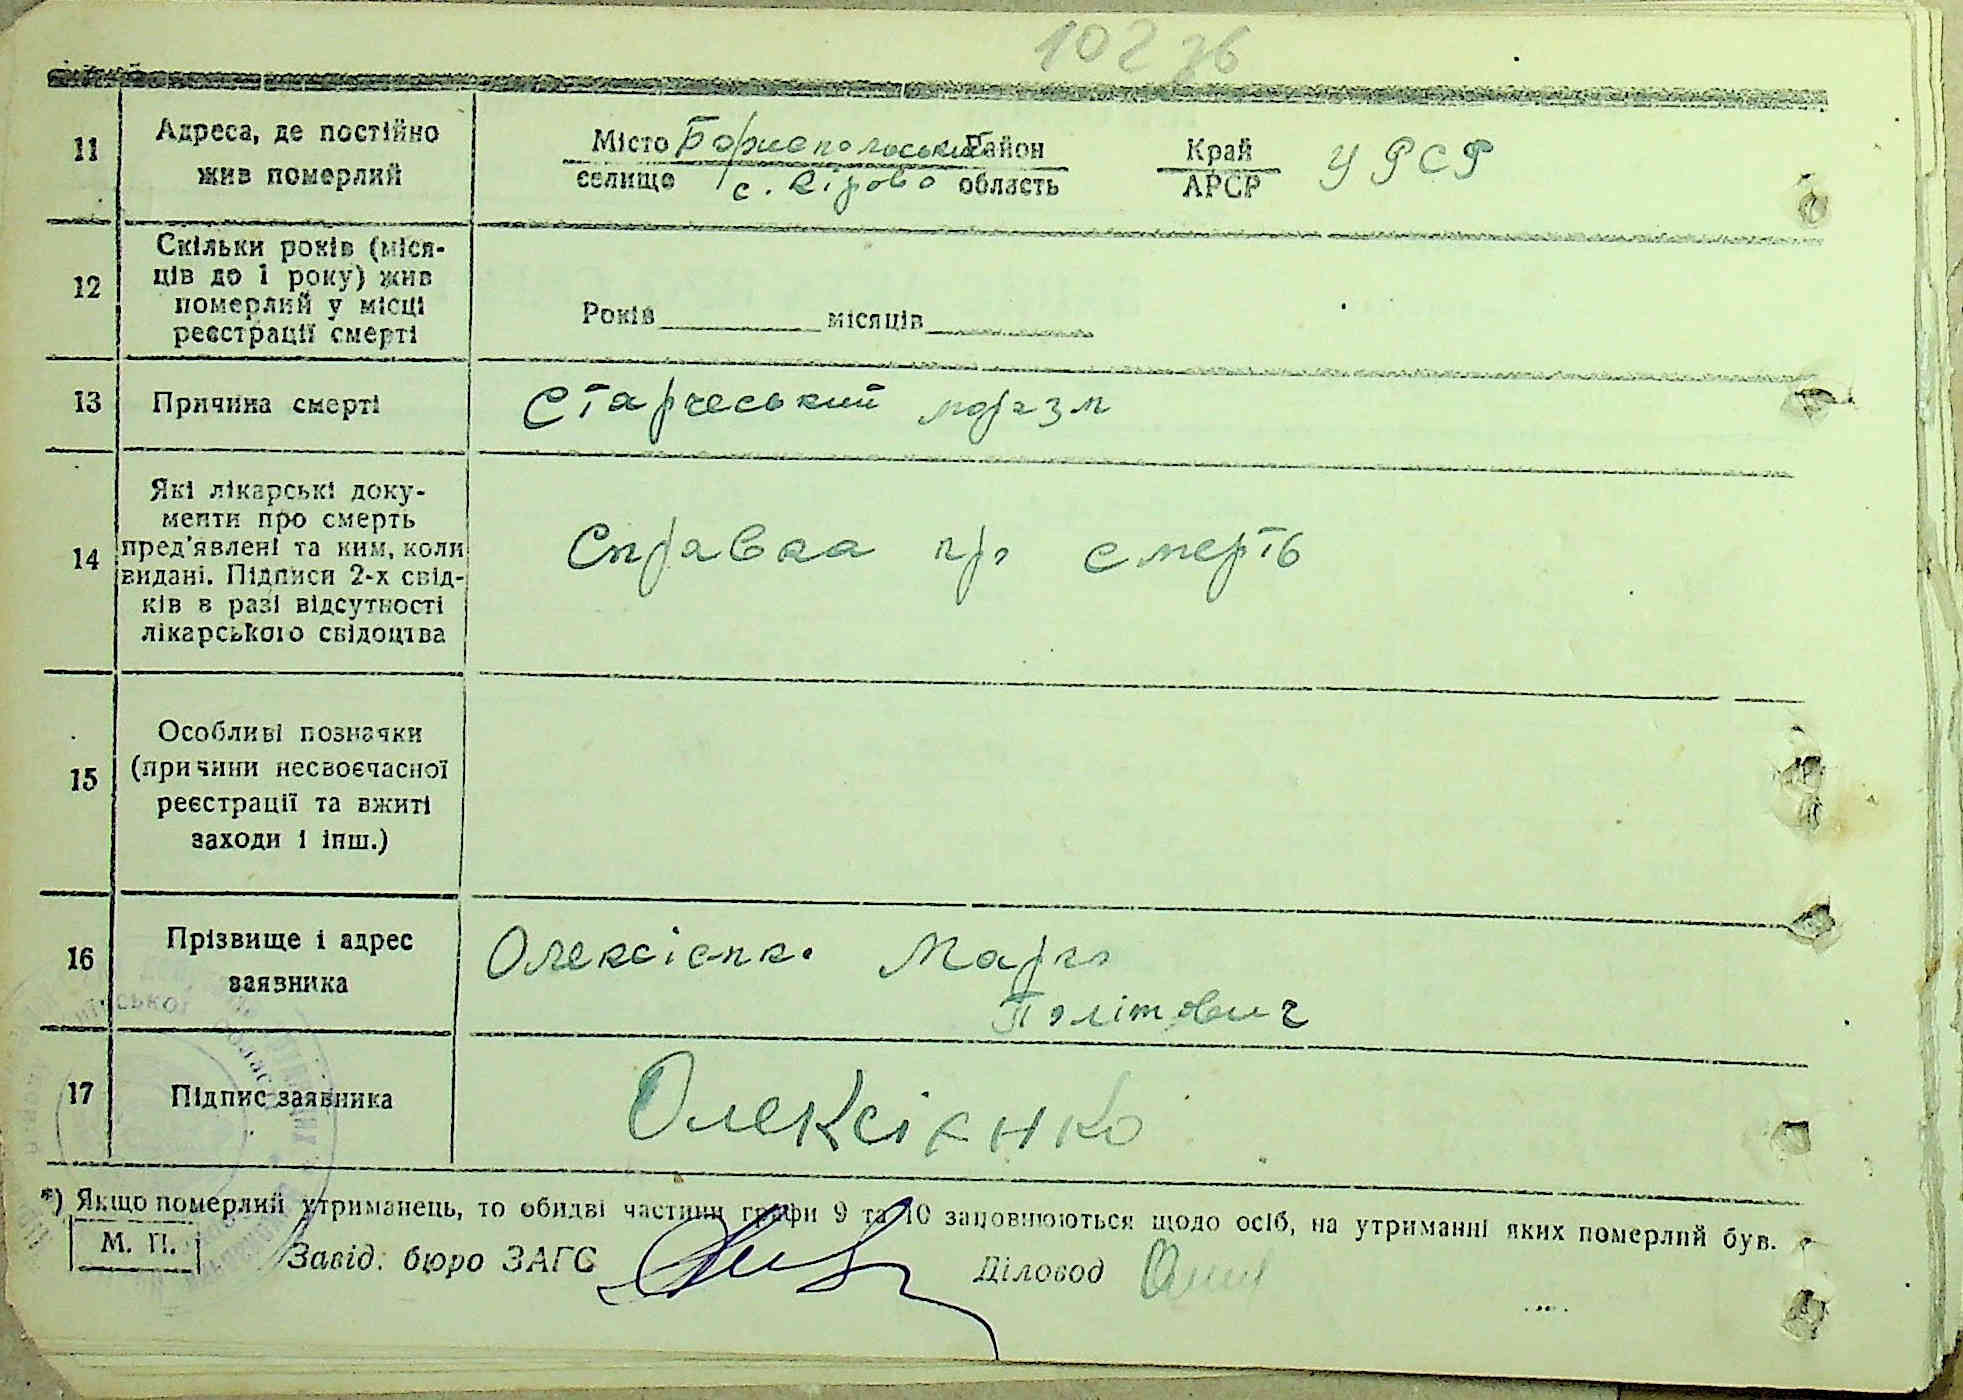 102зв
11 Адреса, де постійно
жив померлий
Місто Бориспольський Район
селище с. Кірово область
Край
АРСР УРСР
12 Скільки років (міся-
ців до 1 року) жив
померлий у місці
реєстрації смерті
Років місяців
13 Причина смерті Старческий маразм
14 Які лікарські доку-
менти про смерть
пред'явлені та ким, коли
видані. Підписи 2-х свід-
ків в разі відсутності
лікарського свідоцтва
Справка про смерть
15 Особливі позначки
(причини несвоєчасної
реєстрації та вжиті
заходи і інш.)
16 Прізвище і адрес
заявника
Олексієнко Марко
17 Підпис заявника Олексієнко
*) Якщо померлий утриманець, то обидві частини графи 9 та 10 заповнюються щодо осіб, на утриманні яких померлий був.
М. П. Завід. бюро ЗАГС Діловод